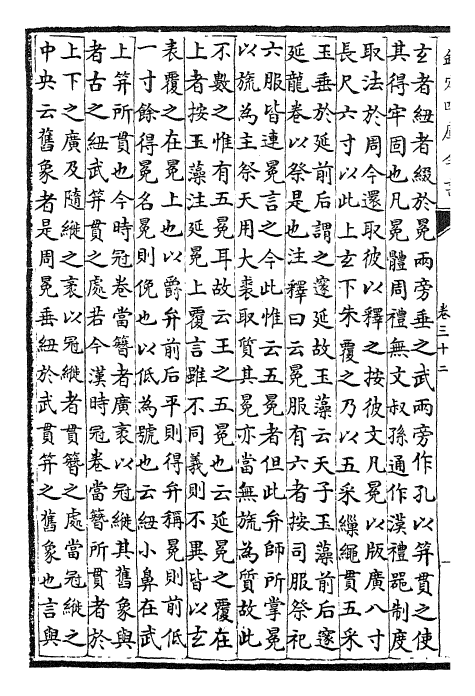 欽定四庫全書
卷三十二
玄者紐者綴於冕兩旁垂之武兩旁作孔以笄貫之使
其得牢固也凡冕體周禮無文叔孫通作漢禮器制度
取法於周今還取彼以釋之按彼文凡冕以版廣八寸
長尺六寸以此上玄下朱覆之乃以五采繅繩貫五采
玉垂於延前后謂之邃延故玉藻云天子玉藻前后邃
延龍卷以祭是也注釋曰云冕服有六者按司服祭祀
六服皆連冕言之今此惟云五冕者但此弁師所掌冕
以旒為主祭天用大裘取質其冕亦當無旒為質故此
不數之惟有五冕耳故云王之五冕也云延冕之覆在
上者按玉藻注延冕上覆言雖不同義則不異皆以玄
表覆之在冕上也以爵弁前后平則得弁稱冕則前低
一寸餘得冕名冕則俛也以低為號也云紐小鼻在武
上笄所貫也今時冠卷當簪者廣袤以冠縰其舊象與
者古之紐武笄貫之處若今漢時冠卷當簪所貫者於
上下之廣及隨縰之袤以冠縰者貫簪之處當冠縰之
中央云舊象者是周冕垂紐於武貫笄之舊象也言與